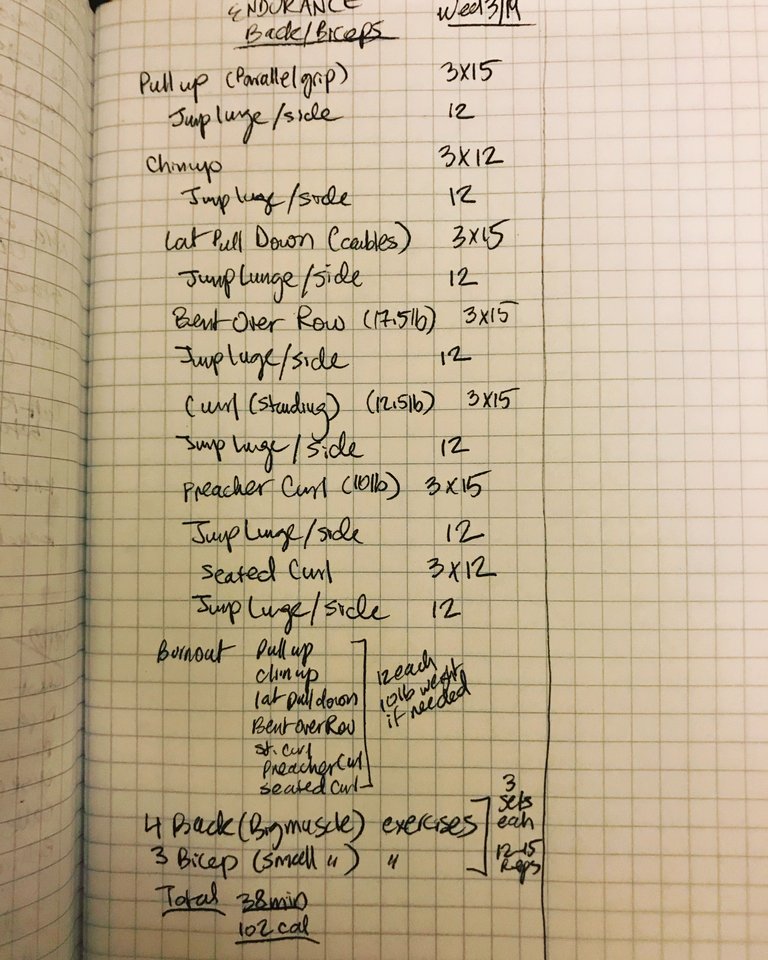 ENDURANCE Wed 3/19
Back/Biceps
Pull up (Parallel grip) 3x15
Jump lunge/side 12
Chinup 3x12
Jump luge/side 12
Lat Pull Down (cables) 3x15
Jump Lunge/side 12
Bent Over Row (17.5lb) 3x15
Jump luge/side 12
Curl (Standing) (12.5lb) 3x15
Jump lunge/side 12
Preacher Curl (10lb) 3x15
Jump Lunge/side 12
Seated Curl 3x12
Jump Lunge/side 12
Burnout Pull up
chin up
lat pull down
Bent Over Row
st. curl
Preacher Curl
seated Curl
12 each
10lb weight
if needed
4 Back (Big muscle) exercises
3 Bicep (small ") "
3
sets
each
12-15
Reps
Total 38 min
102 cal